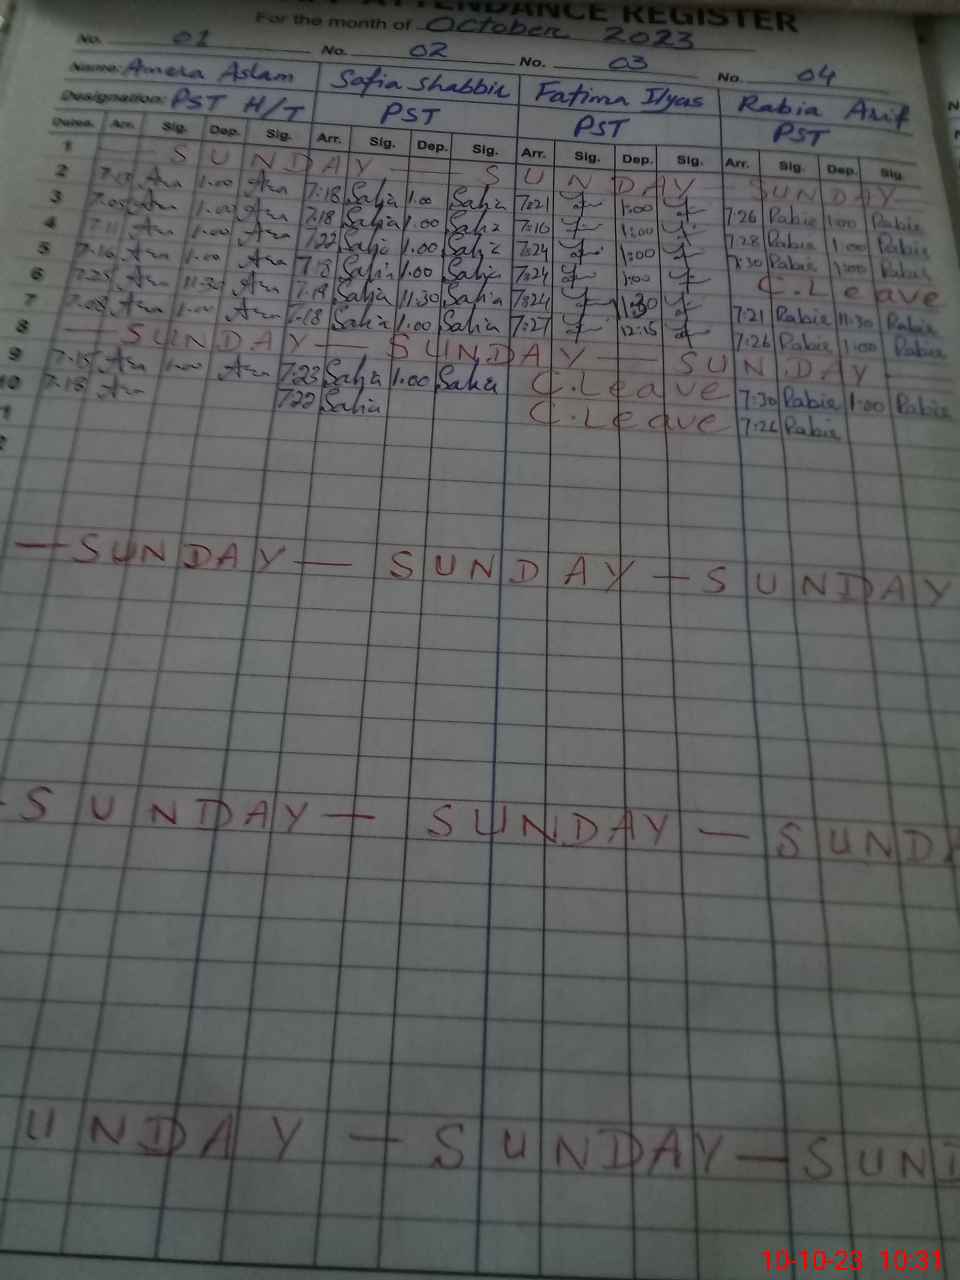 ATTENDANCE REGISTER
For the month of October 2023
No. 01 No. 02 No. 03 No. 04
Name: Amera Aslam Safia Shabbir Fatima Ilyas Rabia Arif
Designation: PST H/T PST PST PST
Dates. Arr. Sig. Dep. Sig. Arr. Sig. Dep. Sig. Arr. Sig. Dep. Sig. Arr. Sig. Dep. Sig.
1 — SUNDAY — SUNDAY — SUNDAY
2 1.00 7:18 Safia 1.00 Safia 7:21 1:00 7:26 Rabia 1:00 Rabia
3 1.00 7:18 Safia 1.00 Safia 7:16 1:00 7:28 Rabia 1:00 Rabia
4 7.11 1.00 7:22 Safia 1.00 Safia 7:24 1:00 7:30 Rabia 1:00 Rabia
5 7.16 1.00 7:18 Safia 1.00 Safia 7:24 1:00 C.Leave
6 7.25 11.30 7:19 Safia 11.30 Safia 7:24 11:30 7:21 Rabia 11:30 Rabia
7 7.08 1.00 7:18 Safia 1.00 Safia 7:27 12:15 7:26 Rabia 1:00 Rabia
8 — SUNDAY — SUNDAY — SUNDAY
9 7.15 1.00 7:23 Safia 1.00 Safia C.Leave 7:30 Rabia 1:00 Rabia
10 7.13 7:22 Safia C.Leave Rabia
— SUNDAY — SUNDAY — SUNDAY
- SUNDAY — SUNDAY — SUND
UNDAY — SUNDAY — SUND
10-10-23 10:31